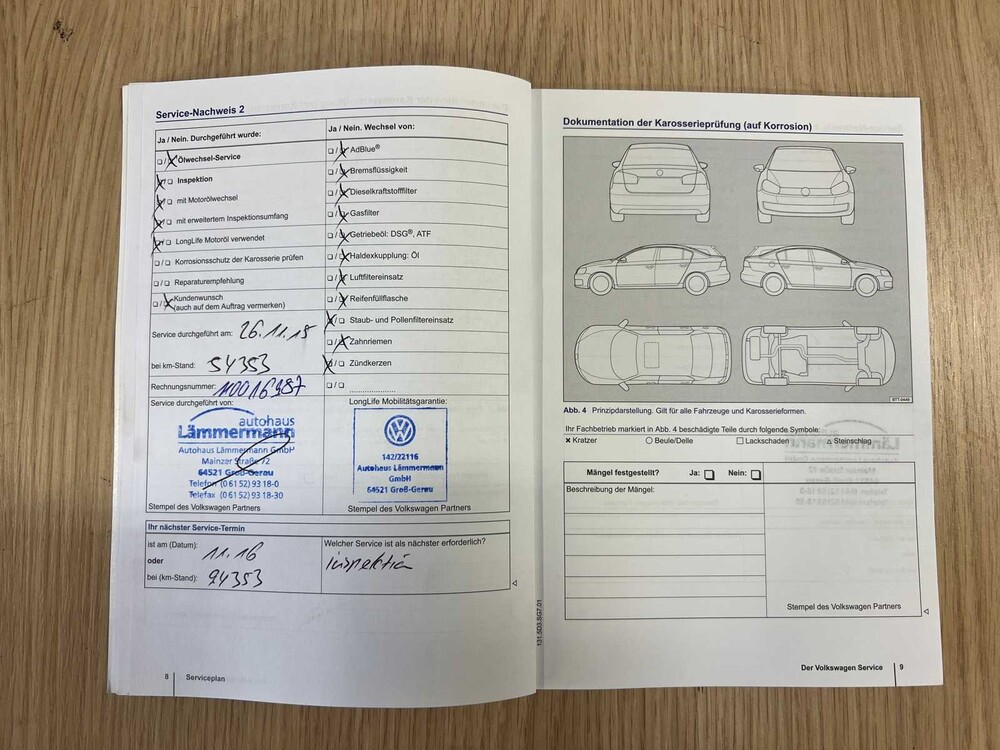 Service-Nachweis 2
Ja / Nein. Durchgeführt wurde:
❏ / ❏ Ölwechsel-Service
❏ / ❏ Inspektion
❏ / ❏ mit Motorölwechsel
❏ / ❏ mit erweitertem Inspektionsumfang
❏ / ❏ LongLife Motoröl verwendet
❏ / ❏ Korrosionsschutz der Karosserie prüfen
❏ / ❏ Reparaturempfehlung
❏ / ❏ Kundenwunsch
(auch auf dem Auftrag vermerken)
Ja / Nein. Wechsel von:
❏ / ❏ AdBlue®
❏ / ❏ Bremsflüssigkeit
❏ / ❏ Dieselkraftstofffilter
❏ / ❏ Gasfilter
❏ / ❏ Getriebeöl: DSG®, ATF
❏ / ❏ Haldexkupplung: Öl
❏ / ❏ Luftfiltereinsatz
❏ / ❏ Reifenfüllflasche
❏ / ❏ Staub- und Pollenfiltereinsatz
❏ / ❏ Zahnriemen
❏ / ❏ Zündkerzen
❏ / ❏ ....................
Service durchgeführt am: 26.11.15
bei km-Stand: 54353
Rechnungsnummer: 110016387
Service durchgeführt von:
autohaus
Lämmermann
Autohaus Lämmermann GmbH
Mainzer Straße 72
64521 Groß-Gerau
Telefon (0 61 52) 93 18-0
Telefax (0 61 52) 93 18-30
Stempel des Volkswagen Partners
LongLife Mobilitätsgarantie:
142/22116
Autohaus Lämmermann
GmbH
64521 Groß-Gerau
Stempel des Volkswagen Partners
Ihr nächster Service-Termin
ist am (Datum): 11.16
oder
bei (km-Stand): 94353
Welcher Service ist als nächster erforderlich?
Inspektion
8 Serviceplan
131.5D3.SG7.01
Dokumentation der Karosserieprüfung (auf Korrosion)
BTT-0449
Abb. 4 Prinzipdarstellung. Gilt für alle Fahrzeuge und Karosserieformen.
Ihr Fachbetrieb markiert in Abb. 4 beschädigte Teile durch folgende Symbole:
✕ Kratzer ○ Beule/Delle ☐ Lackschaden △ Steinschlag
Mängel festgestellt? Ja: ❏ Nein: ❏
Beschreibung der Mängel:
Stempel des Volkswagen Partners
Der Volkswagen Service 9